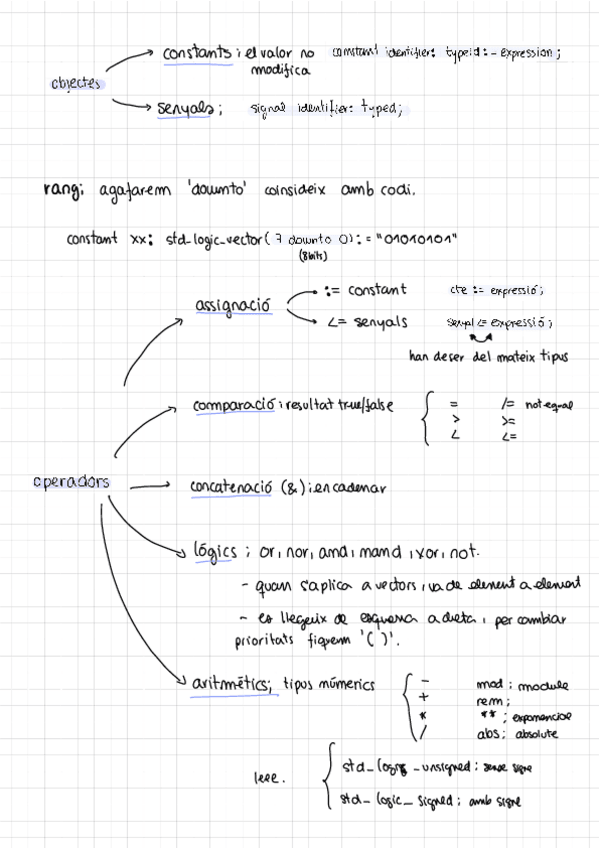 objectes
constants; el valor no modifica
constant identifier: typeid:- expression;
senyals;
signal identifier: typed;
rang; agafarem 'downto' coinsideix amb codi.
constant xx: std_logic_vector( 7 downto 0): = "01010101"
(8bits)
assignació
:= constant
cte := expressió;
<= senyals
senyal <= expressió;
han deser del mateix tipus
operadors
comparació; resultat true/false
= /= not equal
> >=
< <=
concatenació (&); encadenar
lógics ; or, nor, and, nand, xor, not.
- quan s'aplica a vectors, va de element a element
- es llegeix de esquerra a dreta, per cambiar
prioritats fiquem '( )'.
aritmétics; tipus númerics
- mod ; module
+ rem ;
* ** ; exponencial
/ abs ; absolute
ieee.
std_logic_unsigned ; sense signe
std_logic_signed ; amb signe